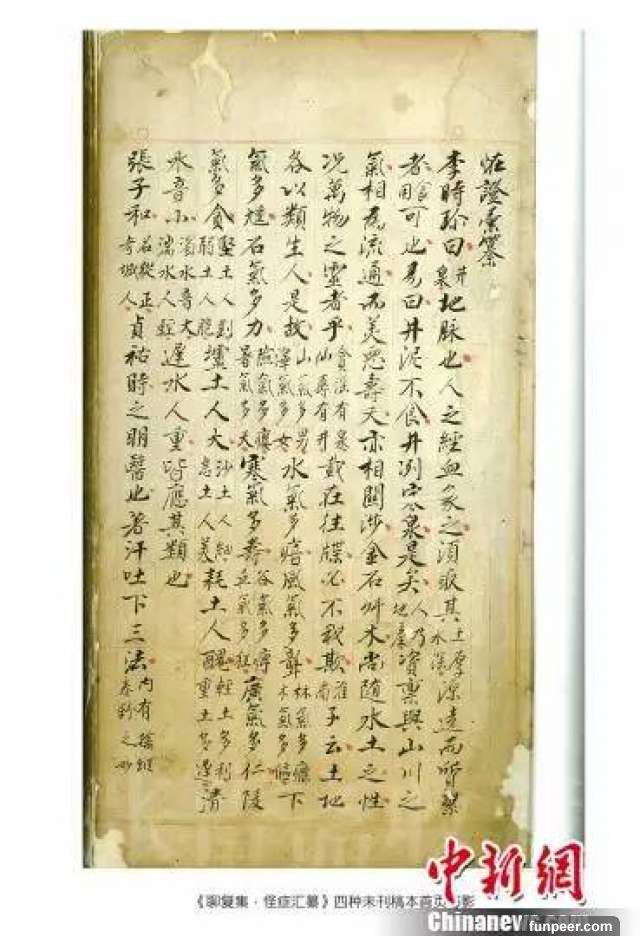 恠證彙纂
李時珍曰井泉地脉也人之經血象之須取其土厚水深源遠而質潔
者食用可也易曰井泥不食井冽寒泉是矣人乃地產資禀與山川之
氣相為流通而美惡壽夭亦相關涉金石艸木尚随水土之性
况萬物之靈者乎貪淫有泉仙壽有井載在往牒必不我欺淮南子云土地
各以類生人是故山氣多男澤氣多女水氣多瘖風氣多聾林氣多癃木氣多傴下
氣多尰石氣多力險氣多癭暑氣多夭寒氣多壽谷氣多痹丘氣多狂廣氣多仁陵
氣多貪堅土人剛弱土人脆壚土人大沙土人細息土人美耗土人醜輕土多利重土多遲清
水音小濁水音大湍水人輕遲水人重皆應其類也
張子和名從正考城人貞祐時之明醫也著汗吐下三法内有之妙
《聊复集·怪症汇纂》四种未刊稿本首页书影
中新網
Chinanews
funpeer.com